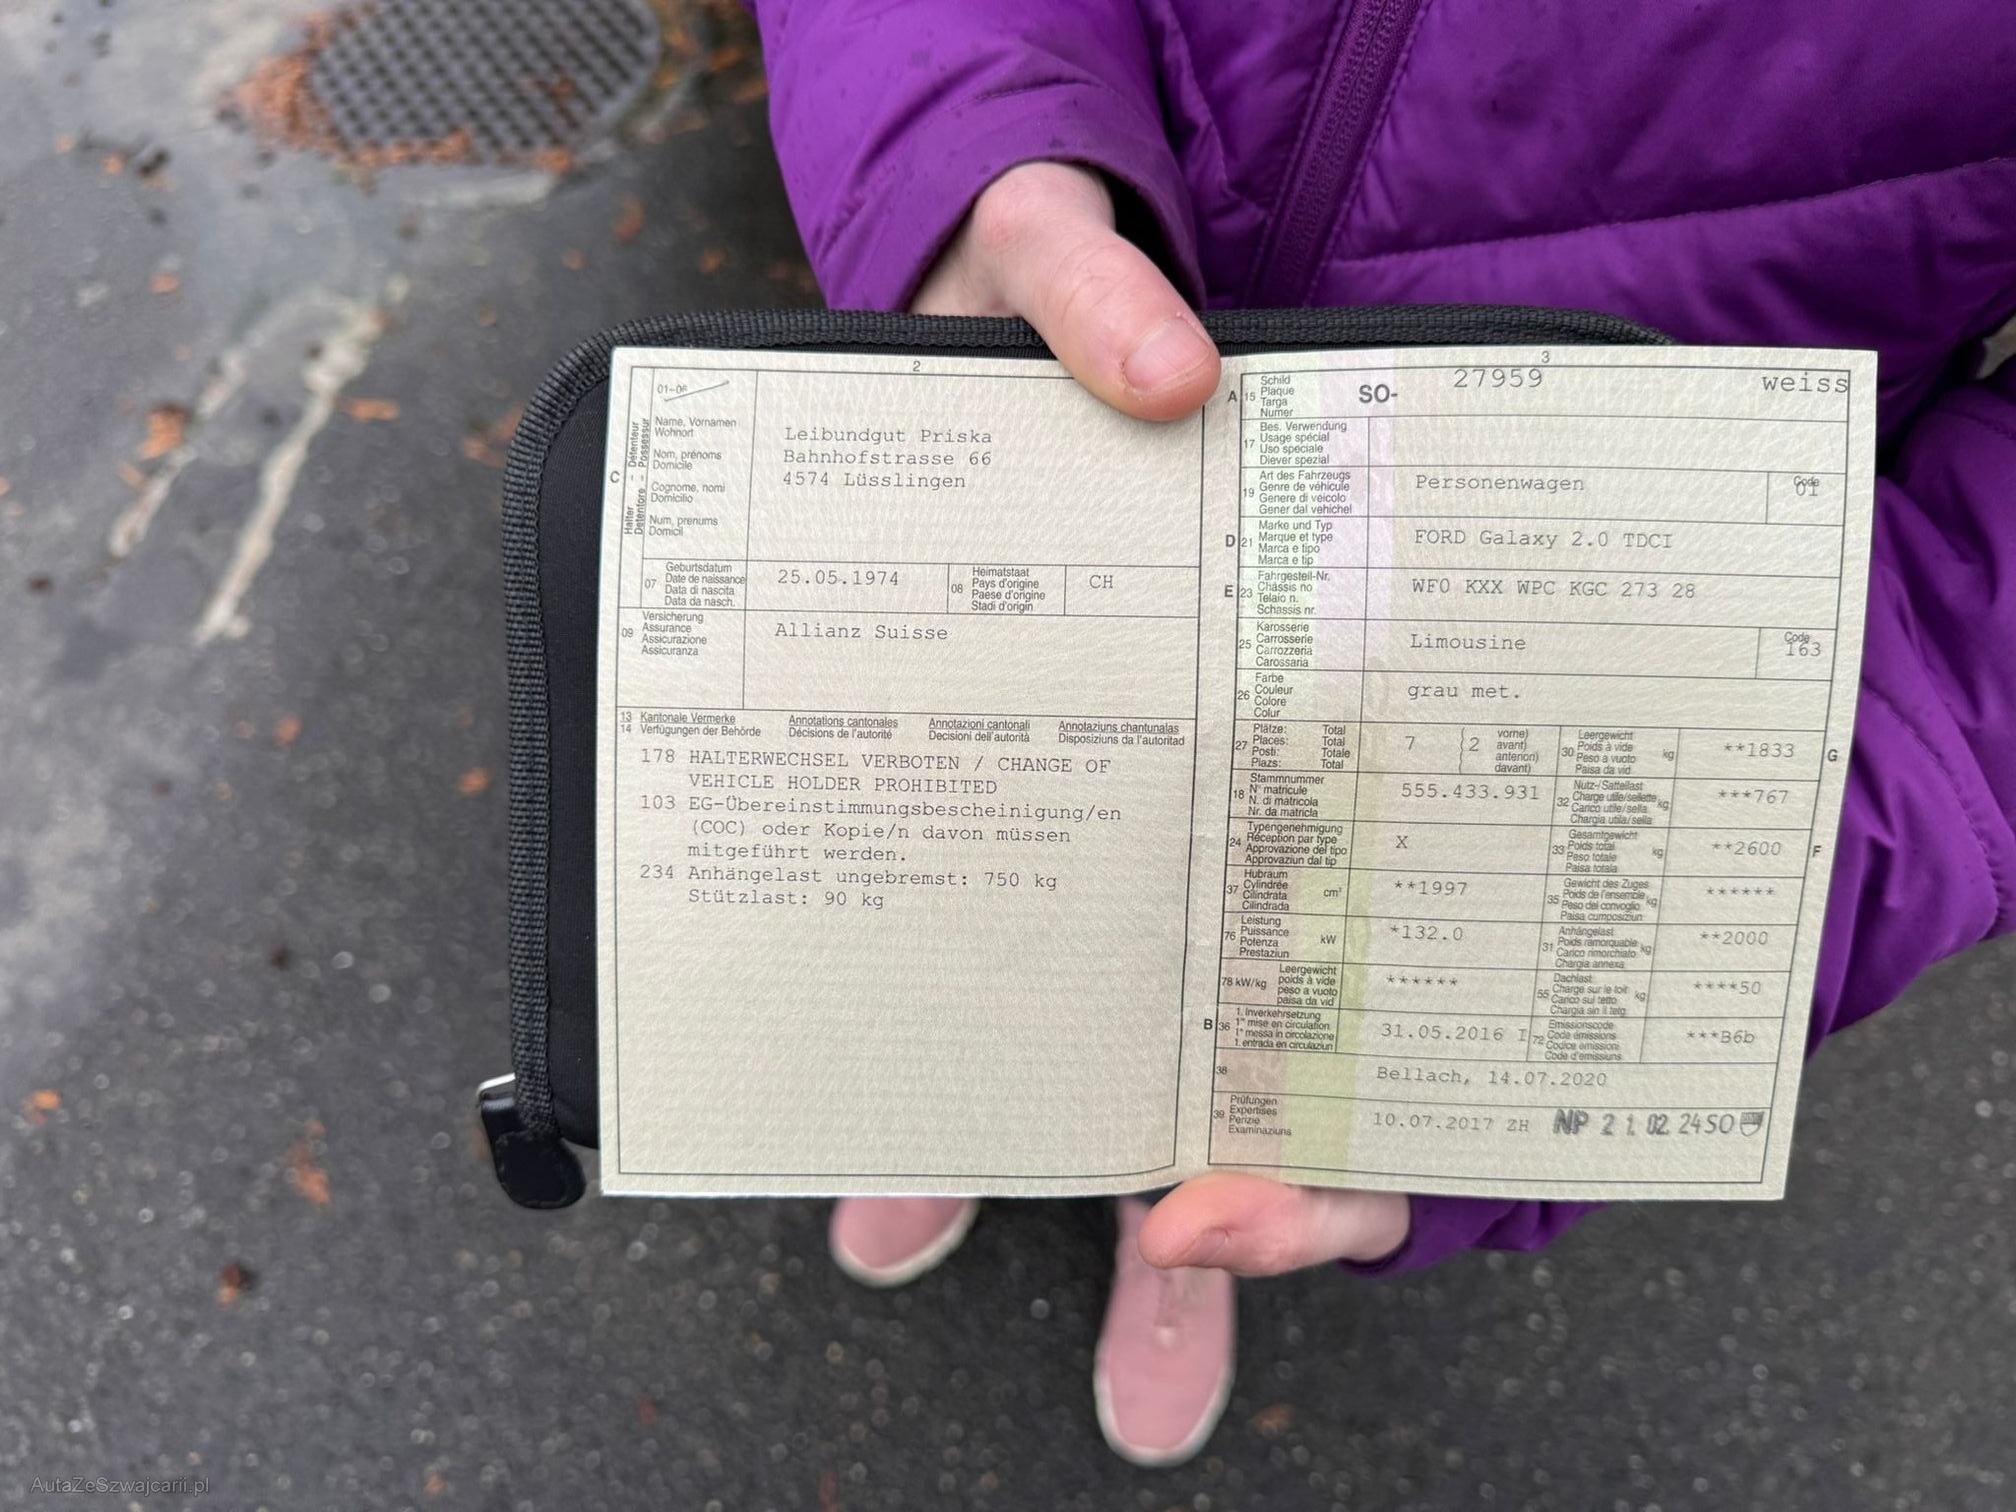 2
01-06
Name, Vornamen
Wohnort
Nom, prénoms
Domicile
Cognome, nomi
Domicilio
Num, prenums
Domicil
C
Halter - Détenteur
Detentore - Possessur
Leibundgut Priska
Bahnhofstrasse 66
4574 Lüsslingen
07
Geburtsdatum
Date de naissance
Data di nascita
Data da nasch.
25.05.1974
08
Heimatstaat
Pays d'origine
Paese d'origine
Stadi d'origin
CH
09
Versicherung
Assurance
Assicurazione
Assicuranza
Allianz Suisse
13 Kantonale Vermerke Annotations cantonales Annotazioni cantonali Annotaziuns chantunalas
14 Verfügungen der Behörde Décisions de l'autorité Decisioni dell'autorità Disposiziuns da l'autoritad
178 HALTERWECHSEL VERBOTEN / CHANGE OF
VEHICLE HOLDER PROHIBITED
103 EG-Übereinstimmungsbescheinigung/en
(COC) oder Kopie/n davon müssen
mitgeführt werden.
234 Anhängelast ungebremst: 750 kg
Stützlast: 90 kg
3
A 15
Schild
Plaque
Targa
Numer
SO- 27959 weiss
17
Bes. Verwendung
Usage spécial
Uso speciale
Diever spezial
19
Art des Fahrzeugs
Genre de véhicule
Genere di veicolo
Gener dal vehichel
Personenwagen
Code
01
D 21
Marke und Typ
Marque et type
Marca e tipo
Marca e tip
FORD Galaxy 2.0 TDCI
E 23
Fahrgestell-Nr.
Châssis no
Telaio n.
Schassis nr.
WF0 KXX WPC KGC 273 28
25
Karosserie
Carrosserie
Carrozzeria
Carossaria
Limousine
Code
163
26
Farbe
Couleur
Colore
Colur
grau met.
27
Plätze: Total
Places: Total
Posti: Totale
Plazs: Total
7 (2
vorne)
avant)
anteriori)
davant)
30
Leergewicht
Poids à vide
Peso a vuoto
Paisa da vid
kg
**1833
G
18
Stammnummer
N° matricule
N. di matricola
Nr. da matricla
555.433.931
32
Nutz-/Sattellast
Charge utile/sellette
Carico utile/sella
Chargia utila/sella
kg
***767
24
Typengenehmigung
Réception par type
Approvazione del tipo
Approvaziun dal tip
X
33
Gesamtgewicht
Poids total
Peso totale
Paisa totala
kg
**2600
F
37
Hubraum
Cylindrée
Cilindrata
Cilindrada
cm³
**1997
35
Gewicht des Zuges
Poids de l'ensemble
Peso del convoglio
Paisa cumposiziun
kg
******
76
Leistung
Puissance
Potenza
Prestaziun
kW
*132.0
31
Anhängelast
Poids remorquable
Carico rimorchiato
Chargia annexa
kg
**2000
78 kW/kg
Leergewicht
poids à vide
peso a vuoto
paisa da vid
******
55
Dachlast
Charge sur le toit
Carico sul tetto
Chargia sin il tetg
kg
****50
B 36
1. Inverkehrsetzung
1re mise en circulation
1a messa in circolazione
1. entrada en circulaziun
31.05.2016 I
72
Emissionscode
Code émissions
Codice emissioni
Code d'emissiuns
***B6b
38
Bellach, 14.07.2020
39
Prüfungen
Expertises
Perizie
Examinaziuns
10.07.2017 ZH NP 21.02.24 SO
AutaZeSzwajcarii.pl